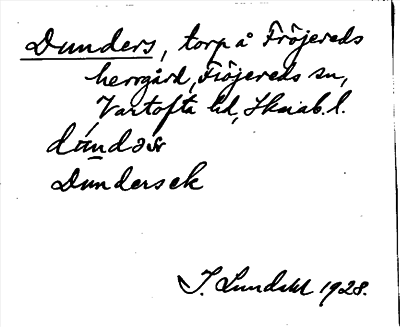 Dunders, torp å Fröjereds
herrgård, Fröjereds sn,
Vartofta hd, Skarab. l.
dundəs
Dundersek
I. Lundahl 1928.